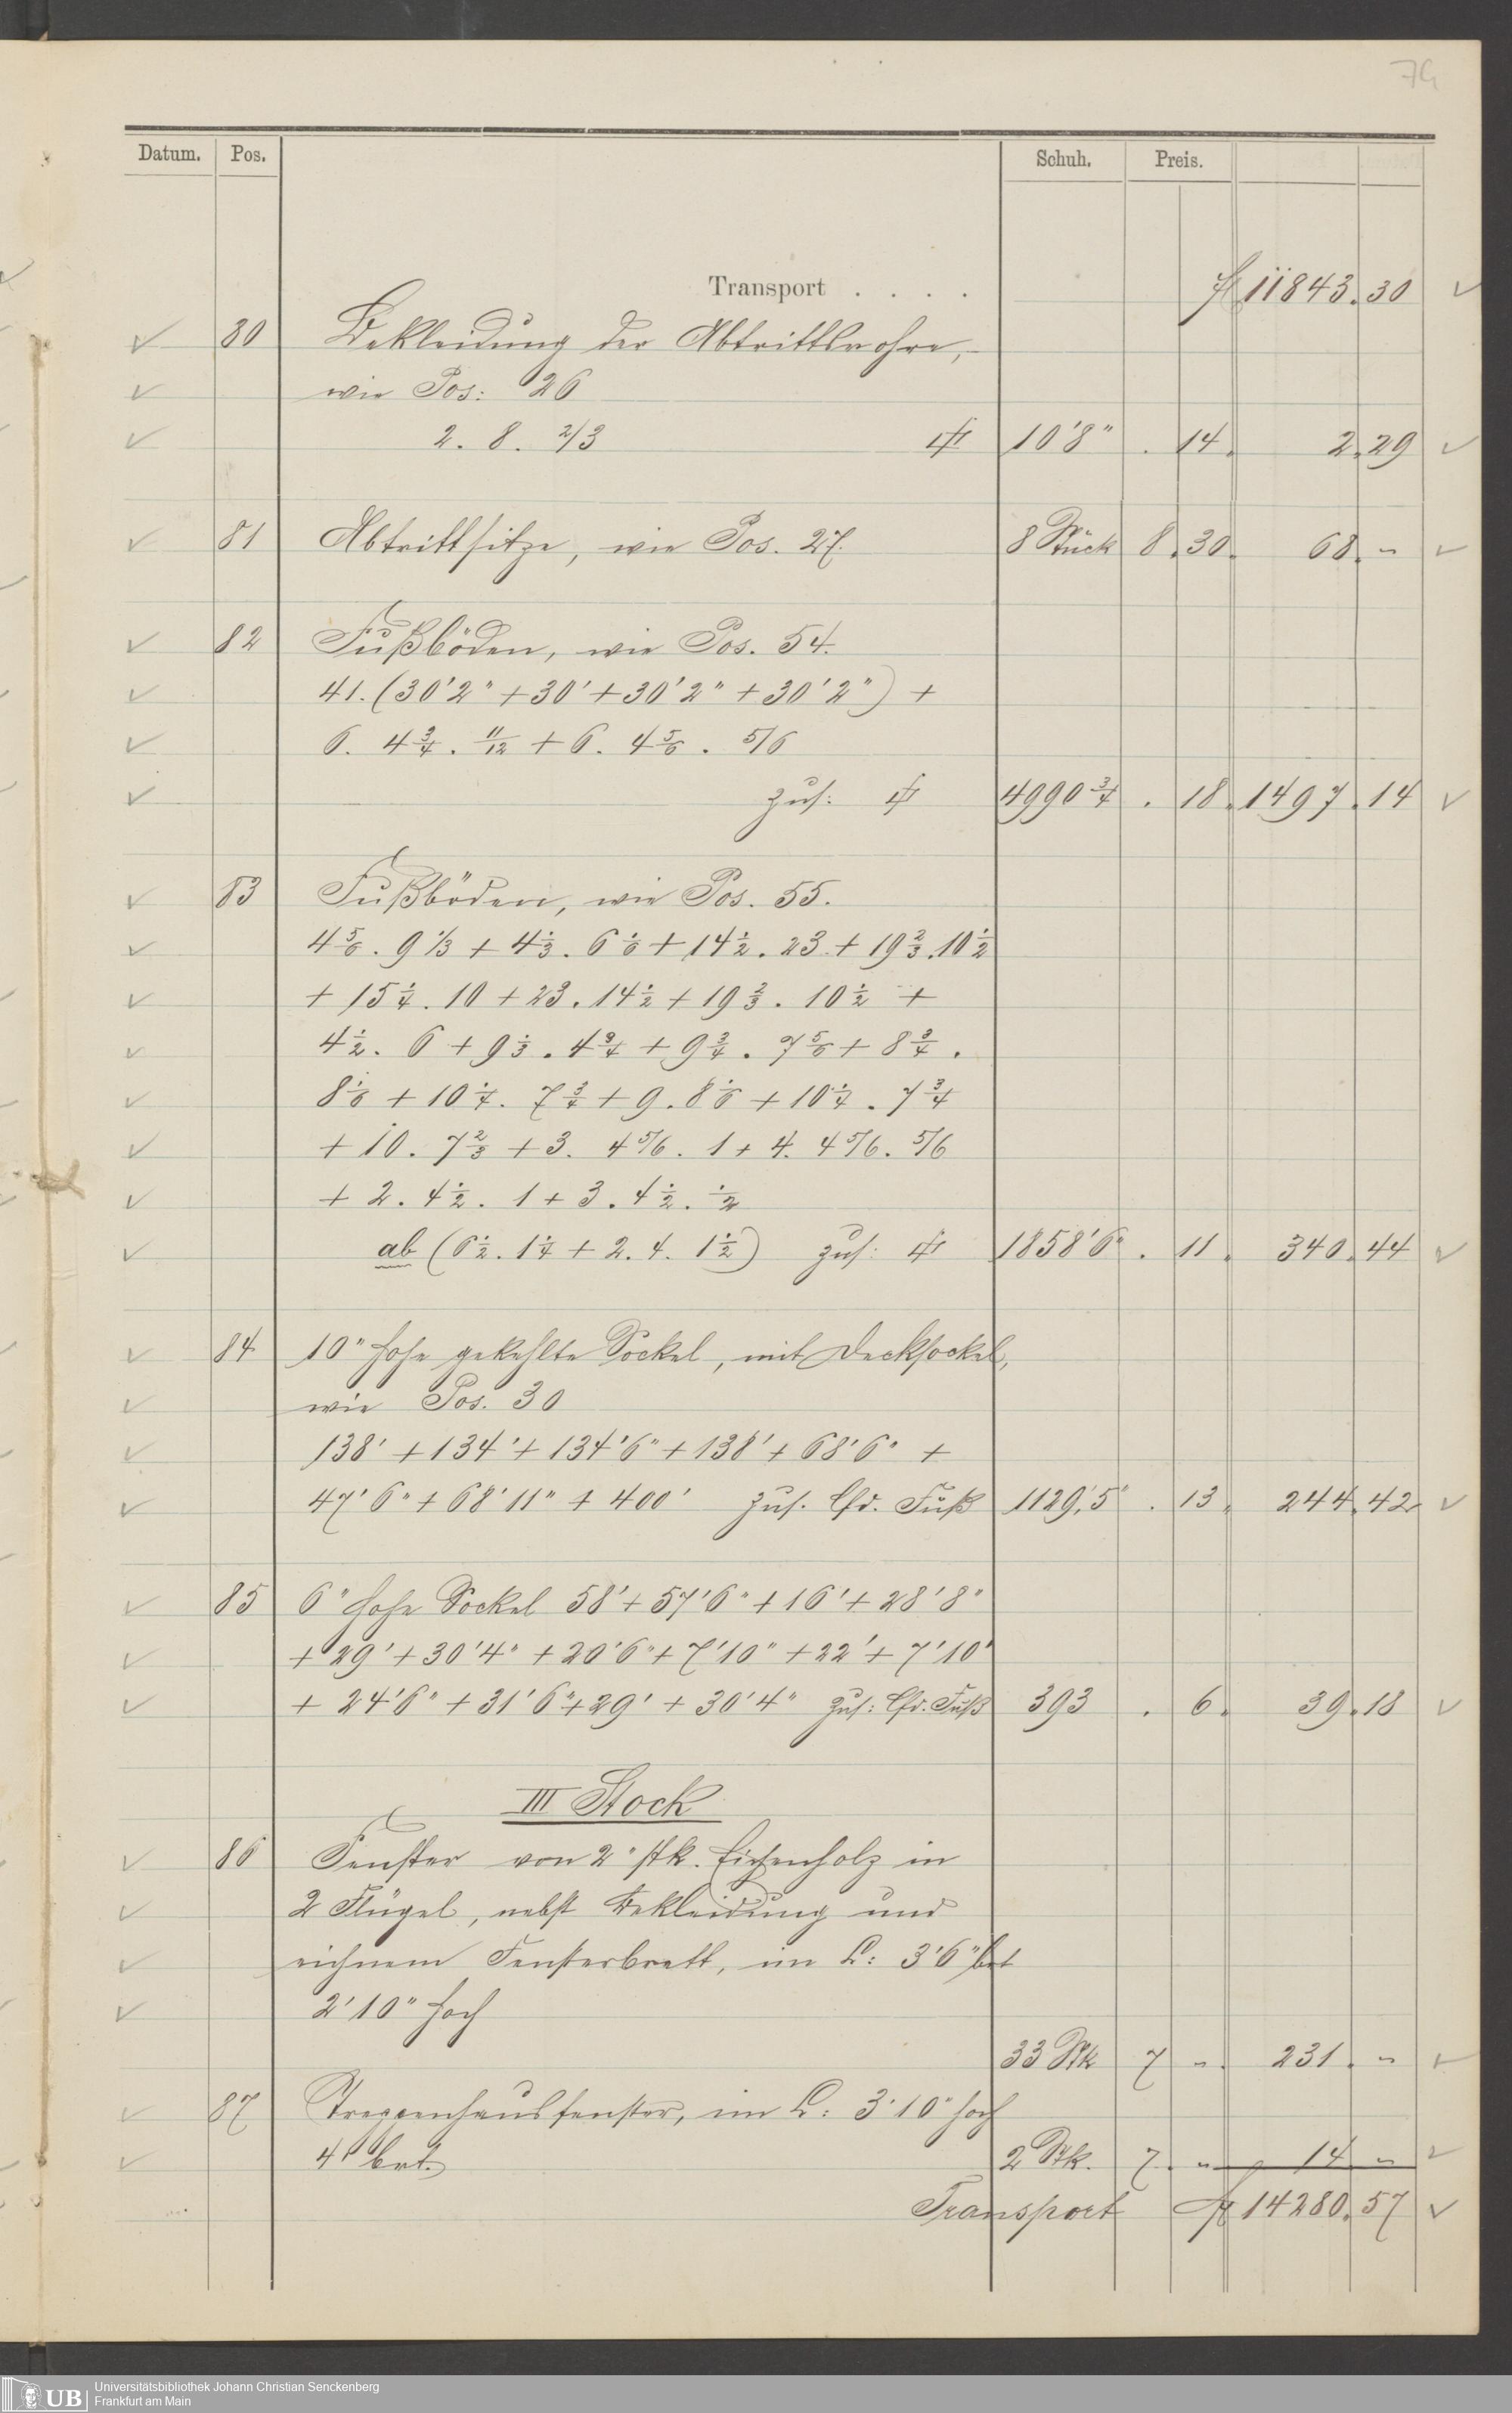 74
Datum. Pos. Schuh. Preis.
Transport . . . . fl 11843. 30
80 Bekleidung der Abtrittsrohre,
wie Pos: 26
2. 8. 2/3 10'8" . 14. 2. 29
81 Abtrittsitze, wie Pos. 27. 8 Stück 8. 30. 68. "
82 Fußböden, wie Pos. 54.
41. (30'2" + 30' + 30'2" + 30'2") +
6. 4 3/4 . 11/12 + 6. 4 5/6 . 5/6
zus: 4990 3/4 . 18. 1497. 14
83 Fußböden, wie Pos. 55.
4 5/6 . 9 1/3 + 4 1/3 . 6 1/6 + 14 1/2 . 23 + 19 2/3 . 10 1/2
+ 15 1/4 . 10 + 23 . 14 1/2 + 19 2/3 . 10 1/2 +
4 1/2 . 6 + 9 1/3 . 4 3/4 + 9 3/4 . 7 5/6 + 8 3/4 .
8 1/6 + 10 1/4 . 7 3/4 + 9 . 8 1/6 + 10 1/4 . 7 3/4
+ 10 . 7 2/3 + 3. 4 5/6 . 1 + 4. 4 5/6 . 5/6
+ 2 . 4 1/2 . 1 + 3 . 4 1/2 . 1/2
ab (6 1/2 . 1 1/4 + 2. 4. 1 1/2) zus: 1858'6" . 11. 340. 44
84 10" hohe gekehlte Sockel, mit Decksockel,
wie Pos. 30
138' + 134' + 134'6" + 138' + 68'6" +
47'6" + 68'11" + 400' zus. lfd. Fuß 1129'5" . 13. 244. 42
85 6" hohe Sockel 58' + 57'6" + 16' + 28'8"
+ 29' + 30'4" + 20'6" + 7'10" + 22' + 7'10"
+ 24'6" + 31'6" + 29' + 30'4" zus: lfd. Fuß 393 . 6. 39. 18
III Stock
86 Fenster von 2" stk. Eichenholz in
2 Flügel, nebst Bekleidung und
eichnem Fensterbrett, im L: 3'6" brt
2'10" hoch
33 Stk 7 ". 231. "
87 Treppenhausfenster, im L: 3'10" hoch
4' brt. 2 Stk. 7. " 14 "
Transport fl 14280. 57
UB Universitätsbibliothek Johann Christian Senckenberg
Frankfurt am Main